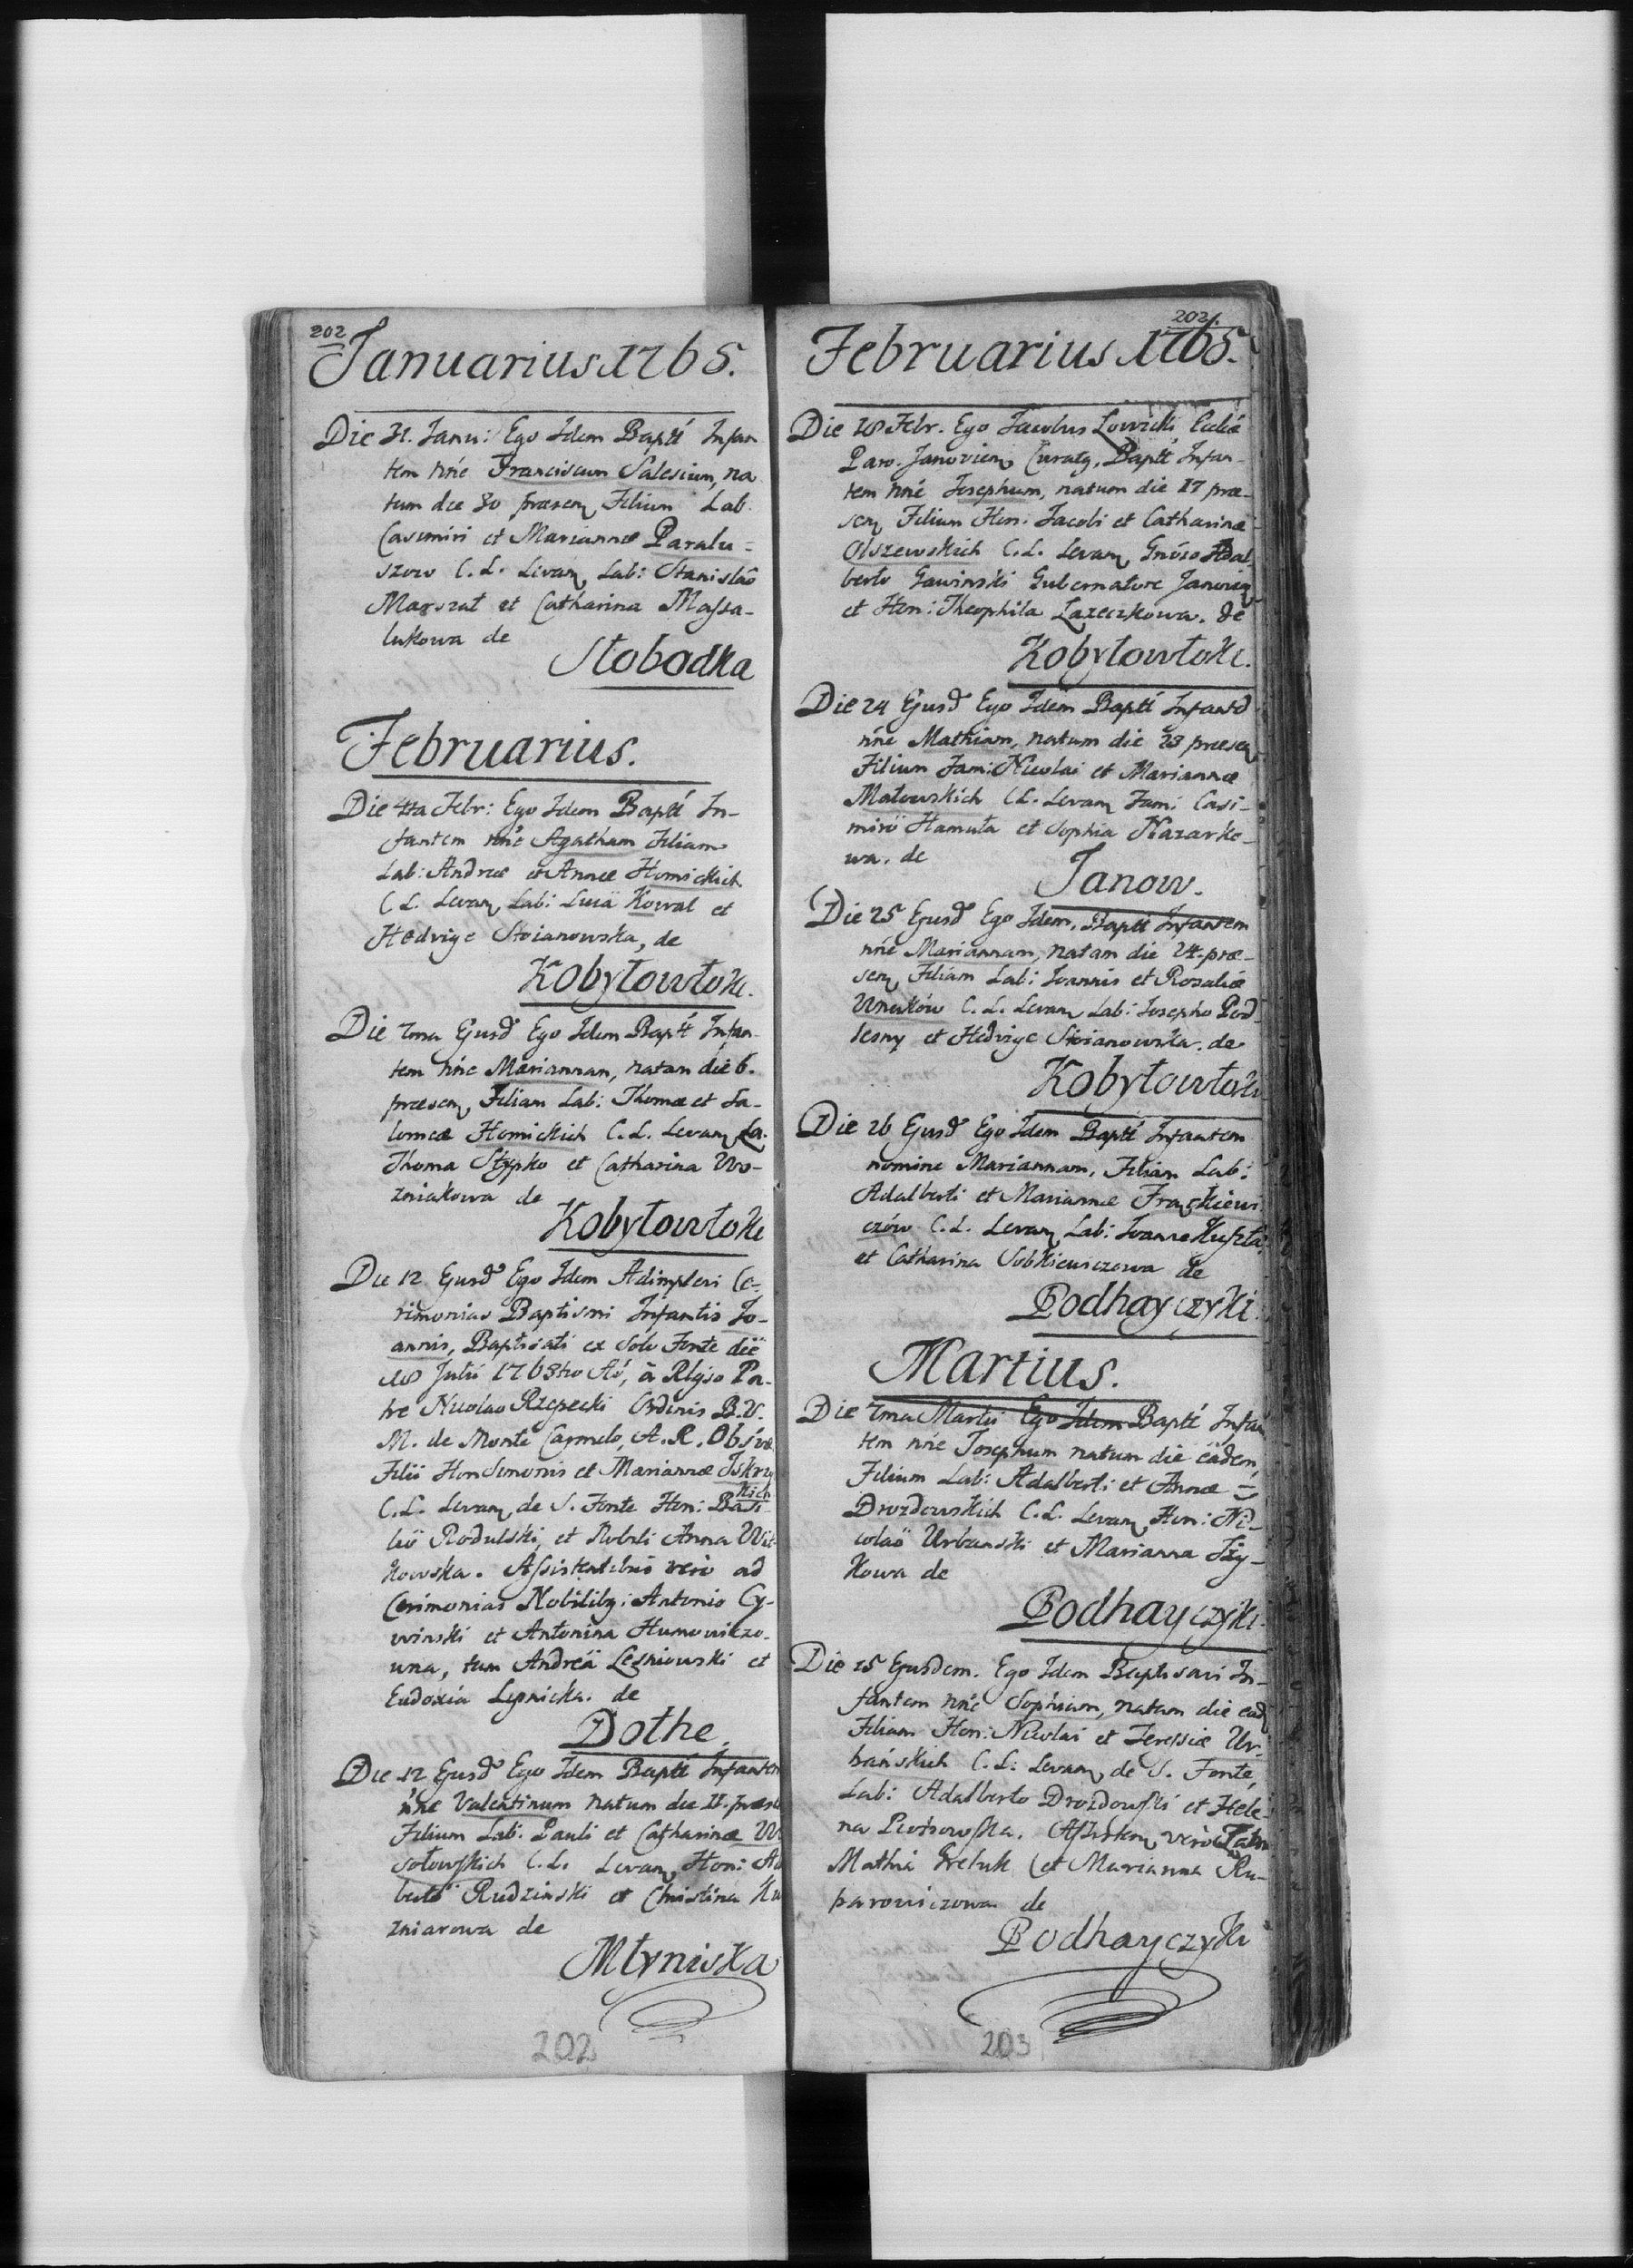 202
Januarius 1765.
Die 31. Janu: Ego Idem Bapti Infan
tem nne Franciscum Salesium, na
tum die 30 praesen Filium Lab.
Casimiri et Mariannae Paralu=
szow C. L. Levan Lab: Stanislao
Marszał et Catharina Massa-
lukowa de
Słobodka
Februarius.
Die 4ta Febr: Ego Idem Bapti In-
fantem nne Agatham Filiam
Lab: Andreae et Annae Homickich
C L. Levan Lab: Kowal et
Hedvige Stoianowska, de
Kobyłowłoki.
Die 7ma Ejusd Ego Idem Bapti Infan-
tem nne Mariannam, natam die 6.
praesen Filiam Lab: Thomae et Sa-
lomeae Homickich C. L. Levan La.
Thoma Stypko et Catharina Wo-
zniakowa de
Kobyłowłoki
Die 12 Ejusd Ego Idem Adimplevi Ce-
rimonias Baptismi Infantis Jo-
annis, Baptisati ex solo Fonte die
18 Julii 1763tio à Rlgso Pa-
tre Nicolao Rzepecki Ordinis B. V.
M. de Monte Carmelo, A. R. Obsve
Filii Hon Simonis et Mariannae Iskrzy
kich
C. L. Levan de S. Fonte Hon: Basi-
lio Rodulski, et Nobili Anna Wit
kowska. Assistentibus vero ad
Cerimonias Nobilibq: Antonio Cy-
winski et Antonina Humowiczo-
wna, tum Andreä Lesniowski et
Eudoxia Lipnicka. de
Dołhe.
Die 12 Ejusd Ego Idem Bapti Infantem
nne Valentinum natum die 11. praese
Filium Lab: Pauli et Catharinae W
sołowskich C. L. Levan Hon: Ad
berto Rudzinski et Christina Ku
zniarowa de
Młyniska
202
202.
Februarius 1765.
Die 18 Febr. Ego Jacobus Łowicki Eccliae
Paro. Janovien Curatq, Bapti Infan-
tem nne Josephum, natum die 17 prae-
sen Filium Hon. Jacobi et Catharinae
Olszewskich C. L. Levan Gnoso Adal
berto Gawinski Gubernatore Janovien
et Hon: Theophila Łazeczkowa. de
Kobyłowłoki.
Die 24 Ejusd Ego Idem Bapti Infantē
nne Mathiam, natum die 23 praesen
Filium Fam: Nicolai et Mariannae
Małowskich C L. Levan Fam: Casi-
miro Hamuła et Sophia Nazarko-
wa. de
Janow.
Die 25 Ejusd Ego Idem, Bapti Infantem
nne Mariannam, natam die 24. prae-
sen Filiam Lab: Joannis et Rosaliae
Wnuków C. L. Levan Lab: Josepho Pod
lesny et Hedvige Stoianowska. de
Kobyłowłoki
Die 26 Ejusd Ego Idem Bapti Infantem
nomine Mariannam, Filiam Lab:
Adalberti et Mariannae Frąckiewi
czów C. L. Levan Lab: Joanne
et Catharina Sobkiewiczowa de
Podhayczyki.
Martius.
Die 7ma Martii Ego Idem Bapti Infan
tem nne Josephum natum die eâdem,
Filium Lab: Adalberti et Annae
Drozdowskich C. L. Levan Hon: Ni-
colaö Urbanski et Marianna
kowa de
Podhayczyki.
Die 15 Ejusdem. Ego Idem Baptisavi In-
fantem nne Sophiam, natam die ead
Filiam Hon: Nicolai et Teressiae Ur-
bańskich C. L: Levan de S. Fonte,
Lab: Adalberto Drozdowski et Hele-
na Piotrowska. Assisten verò
Mathia Greluk et Marianna Ru-
parowiczowa de
Podhayczyki
203